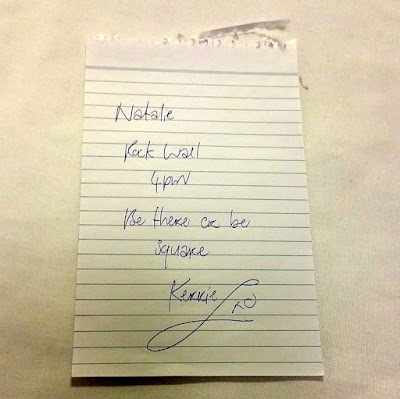 Natalie
Rock Wall
4pm
Be there or be
square
Kerrie xo